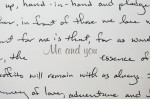 up, hand-in-hand and pledge
in front of those we love
for me is that, for as
Me and you
, the essence of
will remain with us always
of love, adventure and